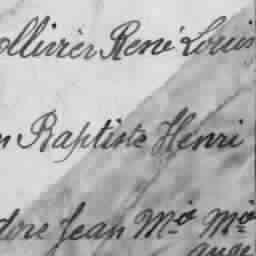 ollivier René Louis
n Baptiste Henri
dore Jean Mie Mie
ange